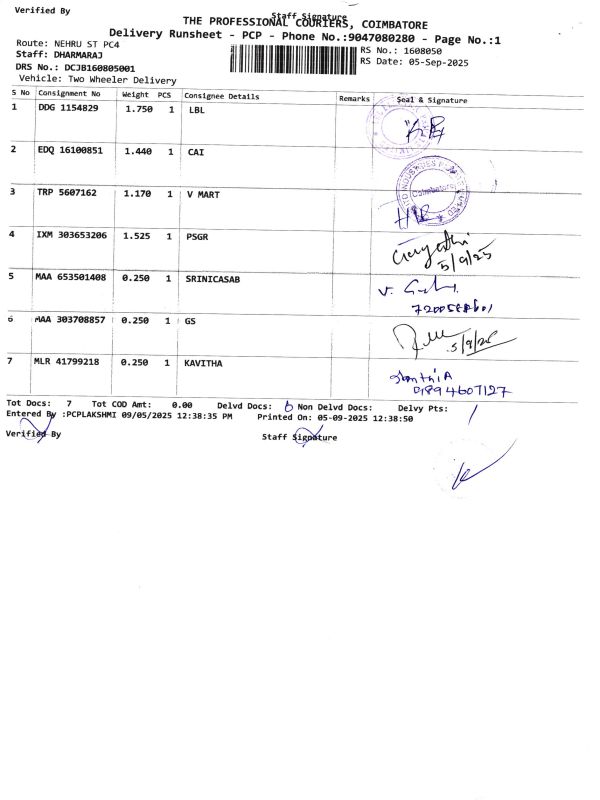 Verified By
Staff Signature
THE PROFESSIONAL COURIERS, COIMBATORE
Delivery Runsheet - PCP - Phone No.:9047080280 - Page No.:1
Route: NEHRU ST PC4
RS No.: 1608050
Staff: DHARMARAJ
RS Date: 05-Sep-2025
DRS No.: DCJB160805001
Vehicle: Two Wheeler Delivery
S No Consignment No Weight PCS Consignee Details Remarks Seal & Signature
1 DDG 1154829 1.750 1 LBL
2 EDQ 16100851 1.440 1 CAI
Coimbatore
3 TRP 5607162 1.170 1 V MART
4 IXM 303653206 1.525 1 PSGR
5/9/25
5 MAA 653501408 0.250 1 SRINICASAB
6 MAA 303708857 0.250 1 GS
5/9/25
7 MLR 41799218 0.250 1 KAVITHA
Tot Docs: 7 Tot COD Amt: 0.00 Delvd Docs: 6 Non Delvd Docs: Delvy Pts:
Entered By :PCPLAKSHMI 09/05/2025 12:38:35 PM Printed On: 05-09-2025 12:38:50
Verified By
Staff Signature